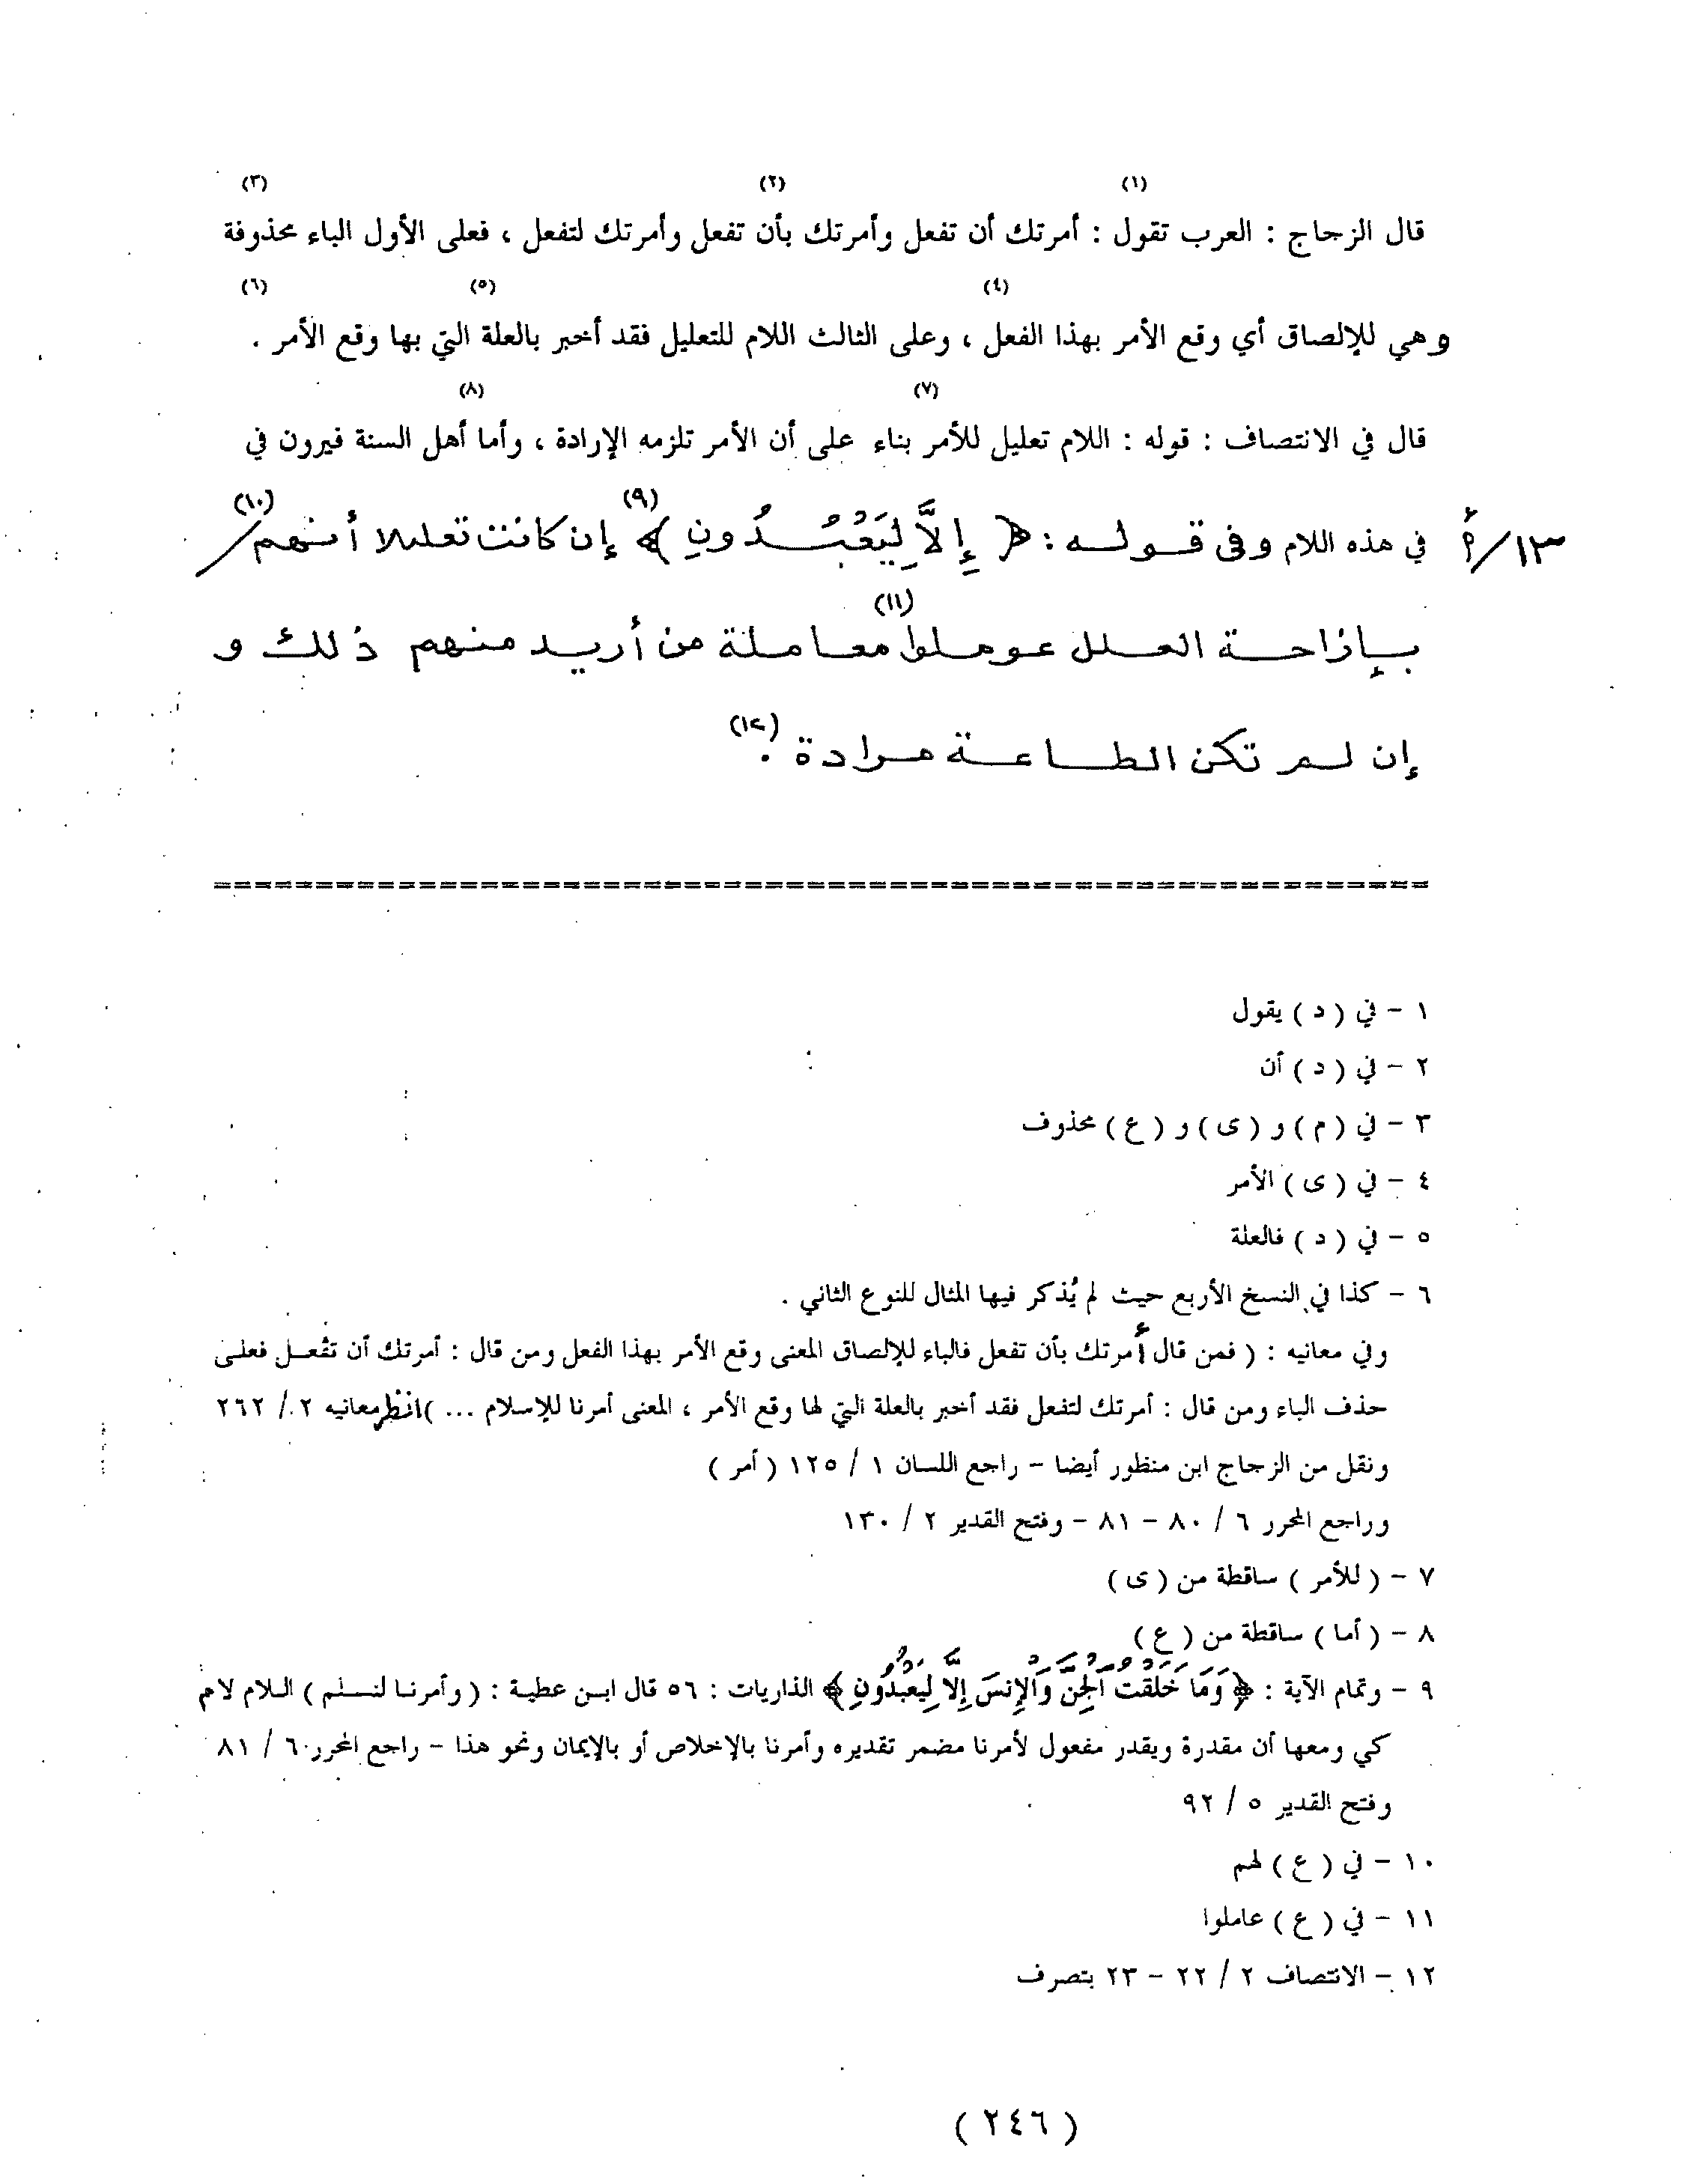 (١) (٢) (٣)
قال الزجاج : العرب تقول : أمرتك أن تفعل وأمرتك بأن تفعل وأمرتك لتفعل ، فعلى الأول الباء محذوفة
(٤) (٥) (٦)
وهي للإلصاق أي وقع الأمر بهذا الفعل ، وعلى الثالث اللام للتعليل فقد أخبر بالعلة التي بها وقع الأمر .
(٧) (٨)
قال في الانتصاف : قوله : اللام تعليل للأمر بناء على أن الأمر تلزمه الإرادة ، وأما أهل السنة فيرون في
١٣/أ في هذه اللام وفى قوله : ﴿ إِلاَّ لِيَعْبُدُونِ ﴾ (٩) إن كانت تعليلا أنهم (١٠) /
بإزاحة العلل عوملوا (١١) معاملة من أريد منهم ذلك و
إن لم تكن الطاعة مرادة . (١٢)
١ - في ( د ) يقول
٢ - في ( د ) أن
٣ - في ( م ) و ( ى ) و ( ع ) محذوف
٤ - في ( ى ) الأمر
٥ - في ( د ) فالعلة
٦ - كذا في النسخ الأربع حيث لم يُذكر فيها المثال للنوع الثاني .
وفي معانيه : ( فمن قال أمرتك بأن تفعل فالباء للإلصاق المعنى وقع الأمر بهذا الفعل ومن قال : أمرتك أن تفعل فعلى
حذف الباء ومن قال : أمرتك لتفعل فقد أخبر بالعلة التي لها وقع الأمر ، المعنى أمرنا للإسلام ... ) انظر معانيه ٢ / ٢٦٢
ونقل من الزجاج ابن منظور أيضا - راجع اللسان ١ / ١٢٥ ( أمر )
وراجع المحرر ٦ / ٨٠ - ٨١ - وفتح القدير ٢ / ١٣٠
٧ - ( للأمر ) ساقطة من ( ى )
٨ - ( أما ) ساقطة من ( ع )
٩ - وتمام الآية : ﴿ وَمَا خَلَقْتُ الْجِنَّ وَالإِنسَ إِلَّا لِيَعْبُدُونِ ﴾ الذاريات : ٥٦ قال ابن عطية : ( وأمرنا لنسلم ) اللام لام
كي ومعها أن مقدرة ويقدر مفعول لأمرنا مضمر تقديره وأمرنا بالإخلاص أو بالإيمان ونحو هذا - راجع المحرر ٦ / ٨١
وفتح القدير ٥ / ٩٢
١٠ - في ( ع ) لهم
١١ - في ( ع ) عاملوا
١٢ - الانتصاف ٢ / ٢٢ - ٢٣ بتصرف
( ٢٤٦ )